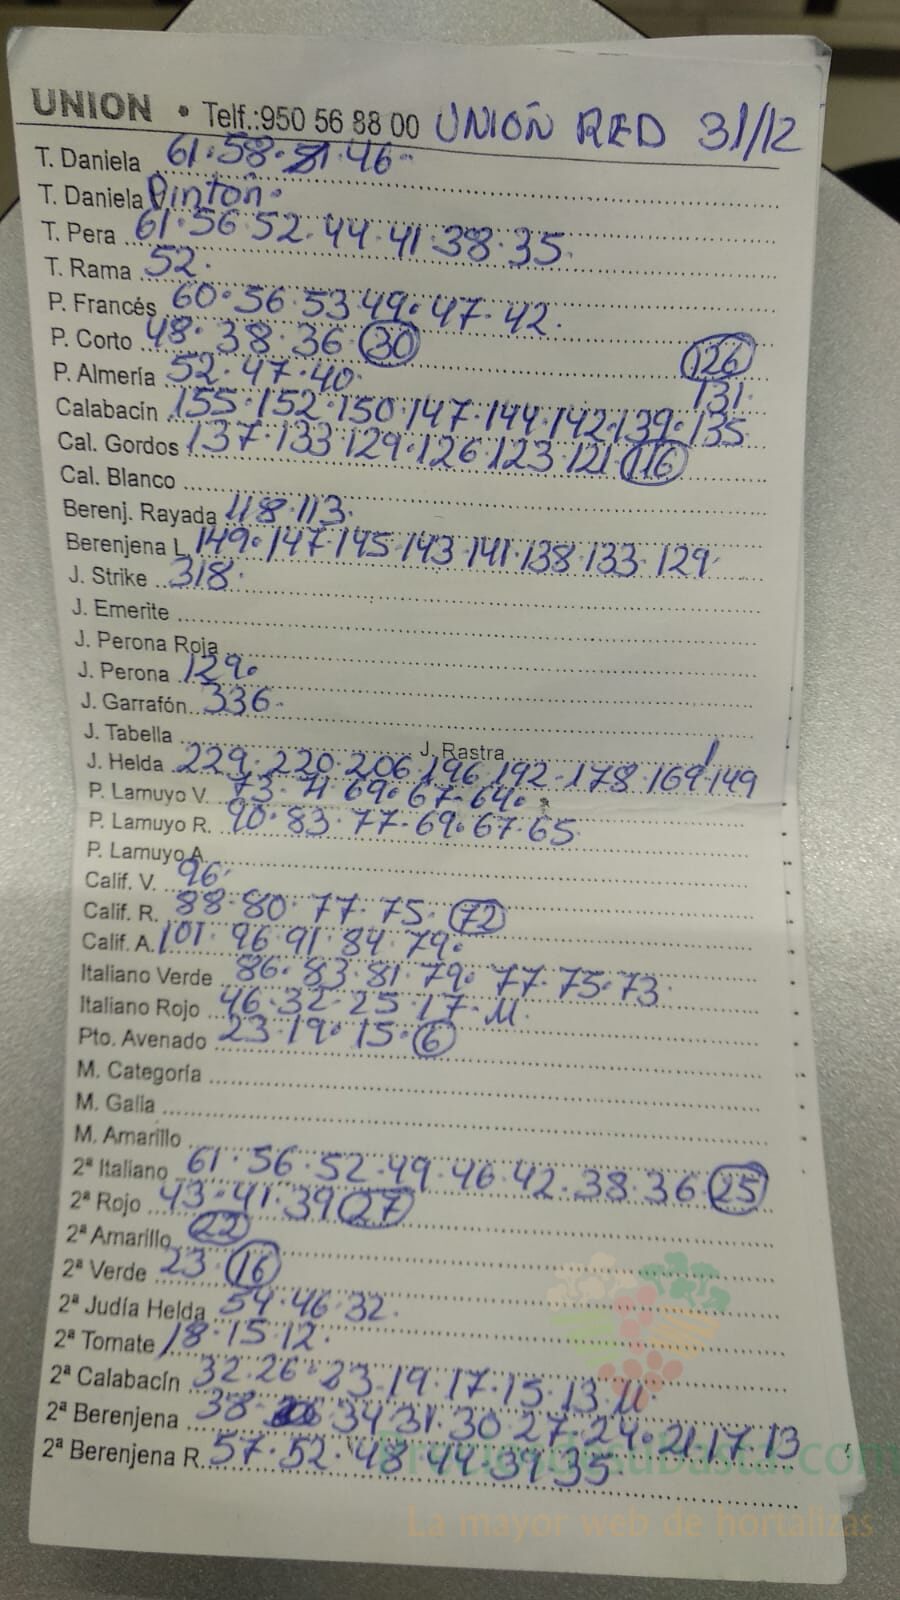 UNION • Telf.:950 56 88 00 UNIOÑ RED 31/12
T. Daniela 61.58.51.46
T. Daniela Pintoñ.
T. Pera 61.56 52.44.41.38.35.
T. Rama 52.
P. Francés 60.56.53.49.47.42.
P. Corto 48.38.36.30 126
P. Almería 52.47.40. 131.
Calabacín 155.152.150.147.144.142.139.135
Cal. Gordos 137.133.129.126.123.121.116
Cal. Blanco
Berenj. Rayada 118.113.
Berenjena L 149.147.145.143.141.138.133.129.
J. Strike 318.
J. Emerite
J. Perona Roja
J. Perona 129.
J. Garrafón 336.
J. Tabella J. Rastra
J. Helda 229.220.206.196.192.178.169.149
P. Lamuyo V. 73.71.69.67.64.
P. Lamuyo R. 90.83.77.69.67.65
P. Lamuyo A.
Calif. V. 96.
Calif. R. 88.80.77.75.72
Calif. A. 101.96.91.84.79.
Italiano Verde 86.83.81.79.77.75.73.
Italiano Rojo 46.32.25.17.11.
Pto. Avenado 23.19.15.6
M. Categoría
M. Galia
M. Amarillo
2ª Italiano 61.56.52.49.46.42.38.36.25
2ª Rojo 43.41.39.27
2ª Amarillo 22
2ª Verde 23.16
2ª Judía Helda 54.46.32.
2ª Tomate 18.15.12.
2ª Calabacín 32.26.23.19.17.15.13.11.
2ª Berenjena 38. 34.31.30.27.24.21.17.13
2ª Berenjena R. 57.52.48.44.39.35.
La mayor web de hortalizas